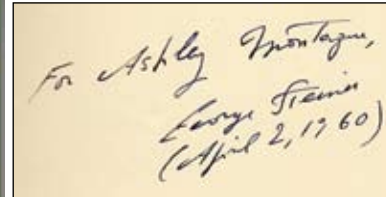 For Ashley Montagu,
George Steiner
(April 2, 1960)